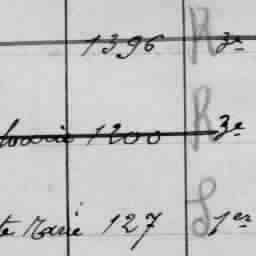 1396 R 3e
1200 R 3e
te Marie 127 S 1er